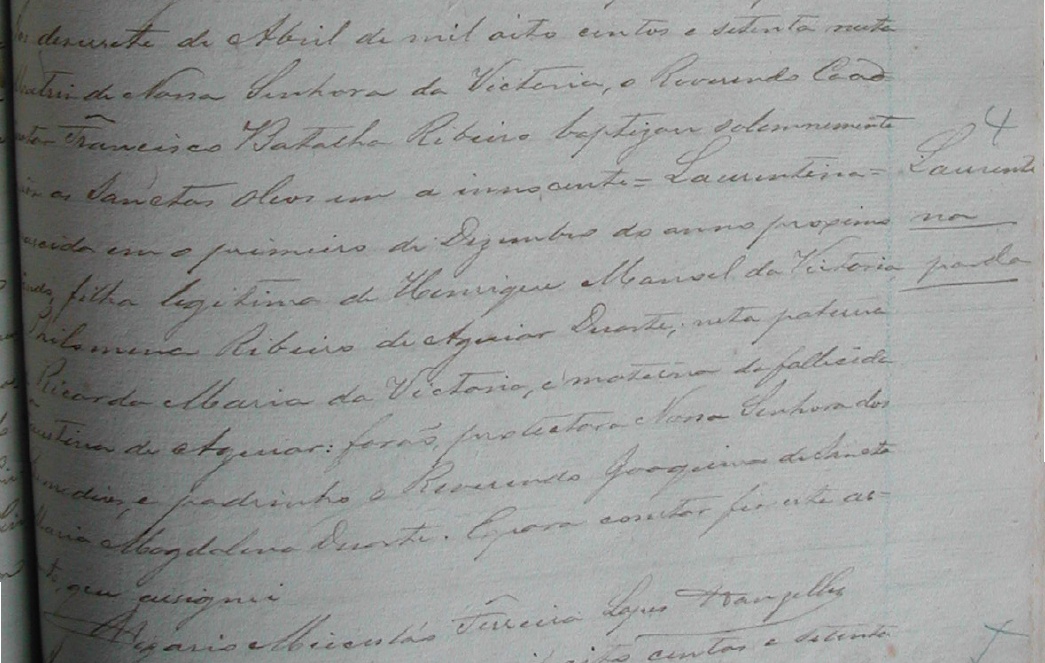 desesete de Abril de mil oito centos e setenta nesta
Matriz de Nossa Senhora da Victoria, o Reverendo Coad
jutor Francisco Batalha Ribeiro baptizou solemnemente
os Sanctos Oleos a innocente = Laurentina =
nascida em o primeiro de Dezembro do anno proximo
filha legitima de Henrique Manoel da Victoria
Philomena Ribeiro de Aguiar Duarte, neta paterna
Ricarda Maria da Victoria, e materna da fallecida
de Aguiar: forão, protectora Nossa Senhora dos
Remedios, e padrinho o Reverendo Joaquim de Santa
Maria Magdalena Duarte. E para constar fiz este as-
to, que assignei
Vigario Ferreira Lopes Wangeller
oito centos e setenta
4
Laurenti
na
parda